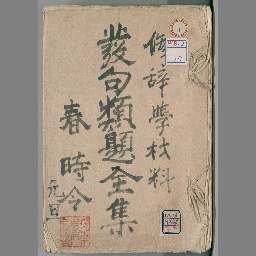 修辞學材料
發句類題全集
春時令
元日